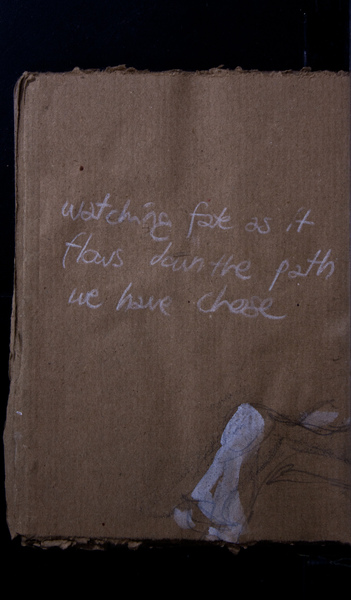 watching fate as it
flows down the path
we have choose